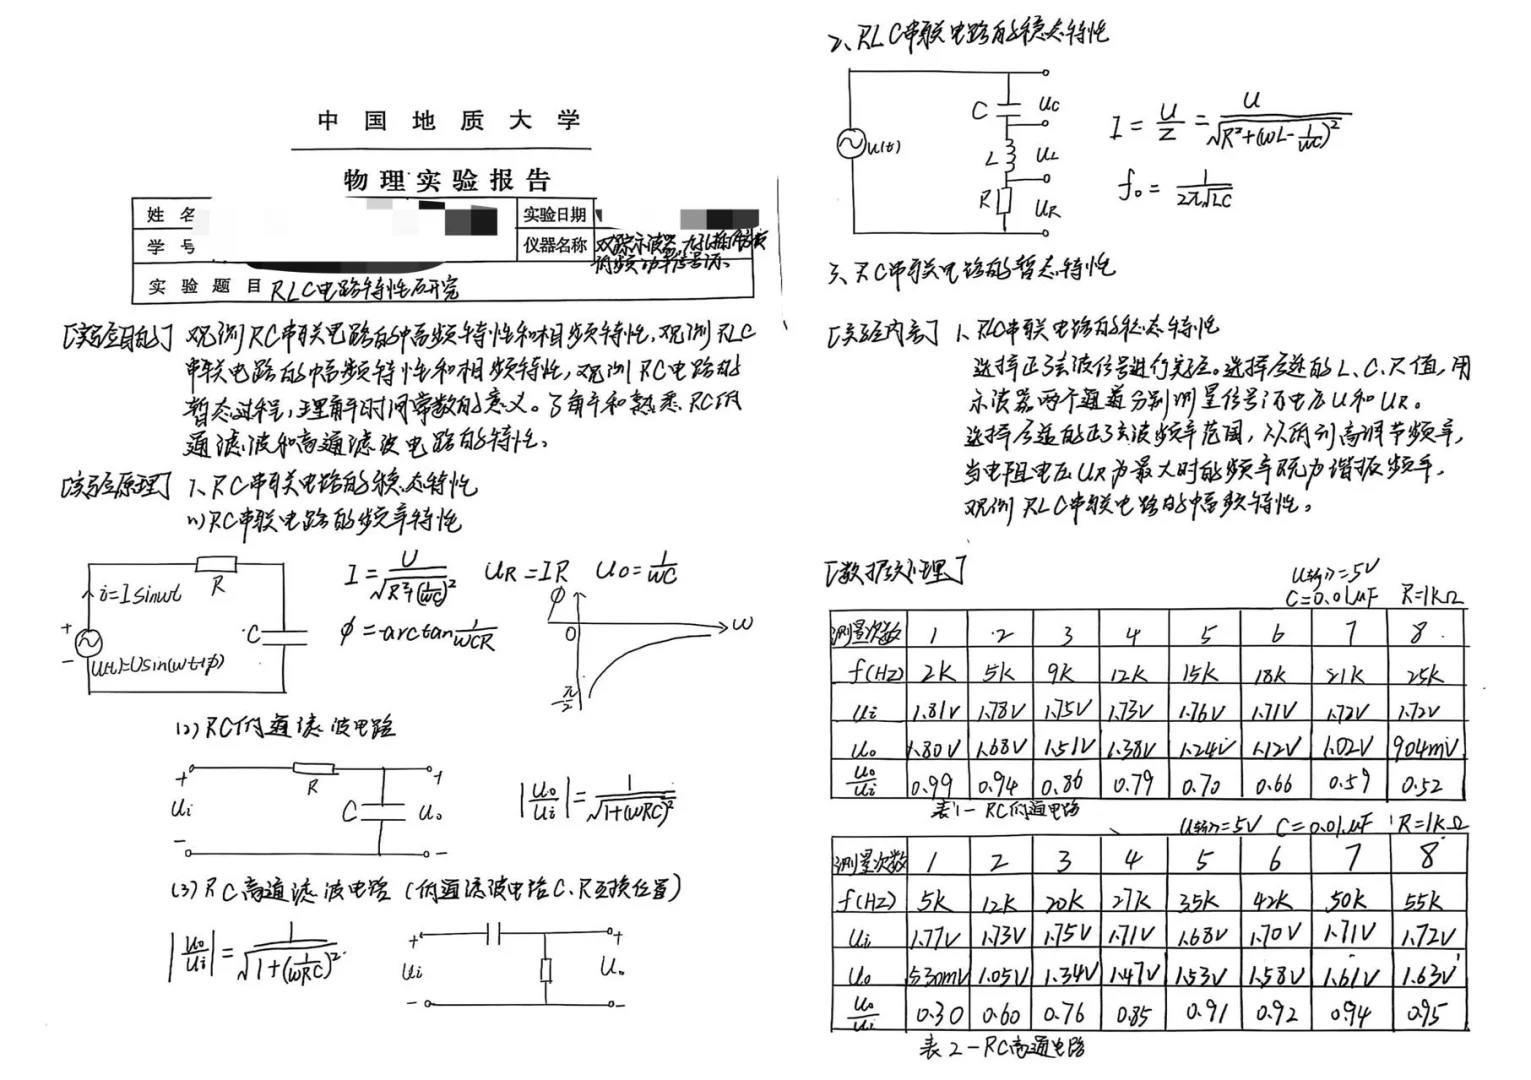 中国地质大学
物理实验报告
姓名
实验日期
学号
仪器名称 双踪示波器、九孔插件方板
低频功率信号源、
实验题目 RLC电路特性研究
[实验目的] 观测RC串联电路的幅频特性和相频特性,观测RLC
串联电路的幅频特性和相频特性,观测RC电路的
暂态过程,理解时间常数的意义。了解和熟悉RC低
通滤波和高通滤波电路的特性、
[实验原理] 1、RC串联电路的稳态特性
(1)RC串联电路的频率特性
i=Isinωt
R
C
u(t)=Usin(ωt+ϕ)
I=U/√R²+(1/ωC)² UR=IR U0=1/ωC
ϕ=arctan 1/ωCR
ϕ
0
ω
-π/2
(2)RC低通滤波电路
+ R +
Ui C U。
- -
|U0/Ui|=1/√1+(ωRC)²
(3)RC高通滤波电路(低通滤波电路C、R互换位置)
|U0/Ui|=1/√1+(1/ωRC)²
+ +
Ui U。
- -
2、RLC串联电路的稳态特性
u(t)
C UC
L UL
R UR
I=U/Z=U/√R²+(ωL-1/ωC)²
f0=1/2π√LC
3、RC串联电路的暂态特性
[实验内容] 1、RLC串联电路的稳态特性
选择正弦波信号进行实验。选择合适的L、C、R值,用
示波器两个通道分别测量信号源电压U和UR。
选择合适的正弦波频率范围,从低到高调节频率,
当电阻电压UR为最大时的频率既为谐振频率,
观测RLC串联电路的幅频特性。
[数据处理]
U输入=5V
C=0.01μF R=1KΩ
测量次数 1 2 3 4 5 6 7 8
f(HZ) 2K 5K 9K 12K 15K 18K 21K 25K
Ui 1.81V 1.78V 1.75V 1.73V 1.76V 1.71V 1.72V 1.72V
U0 1.80V 1.68V 1.51V 1.38V 1.24V 1.12V 1.02V 904mV
U0/Ui 0.99 0.94 0.86 0.79 0.70 0.66 0.59 0.52
表1-RC低通电路
U输入=5V C=0.01μF R=1KΩ
测量次数 1 2 3 4 5 6 7 8
f(HZ) 5K 12K 20K 27K 35K 42K 50K 55K
Ui 1.77V 1.73V 1.75V 1.71V 1.68V 1.70V 1.71V 1.72V
U0 530mV 1.05V 1.34V 1.47V 1.53V 1.58V 1.61V 1.63V
U0/Ui 0.30 0.60 0.76 0.85 0.91 0.92 0.94 0.95
表2-RC高通电路